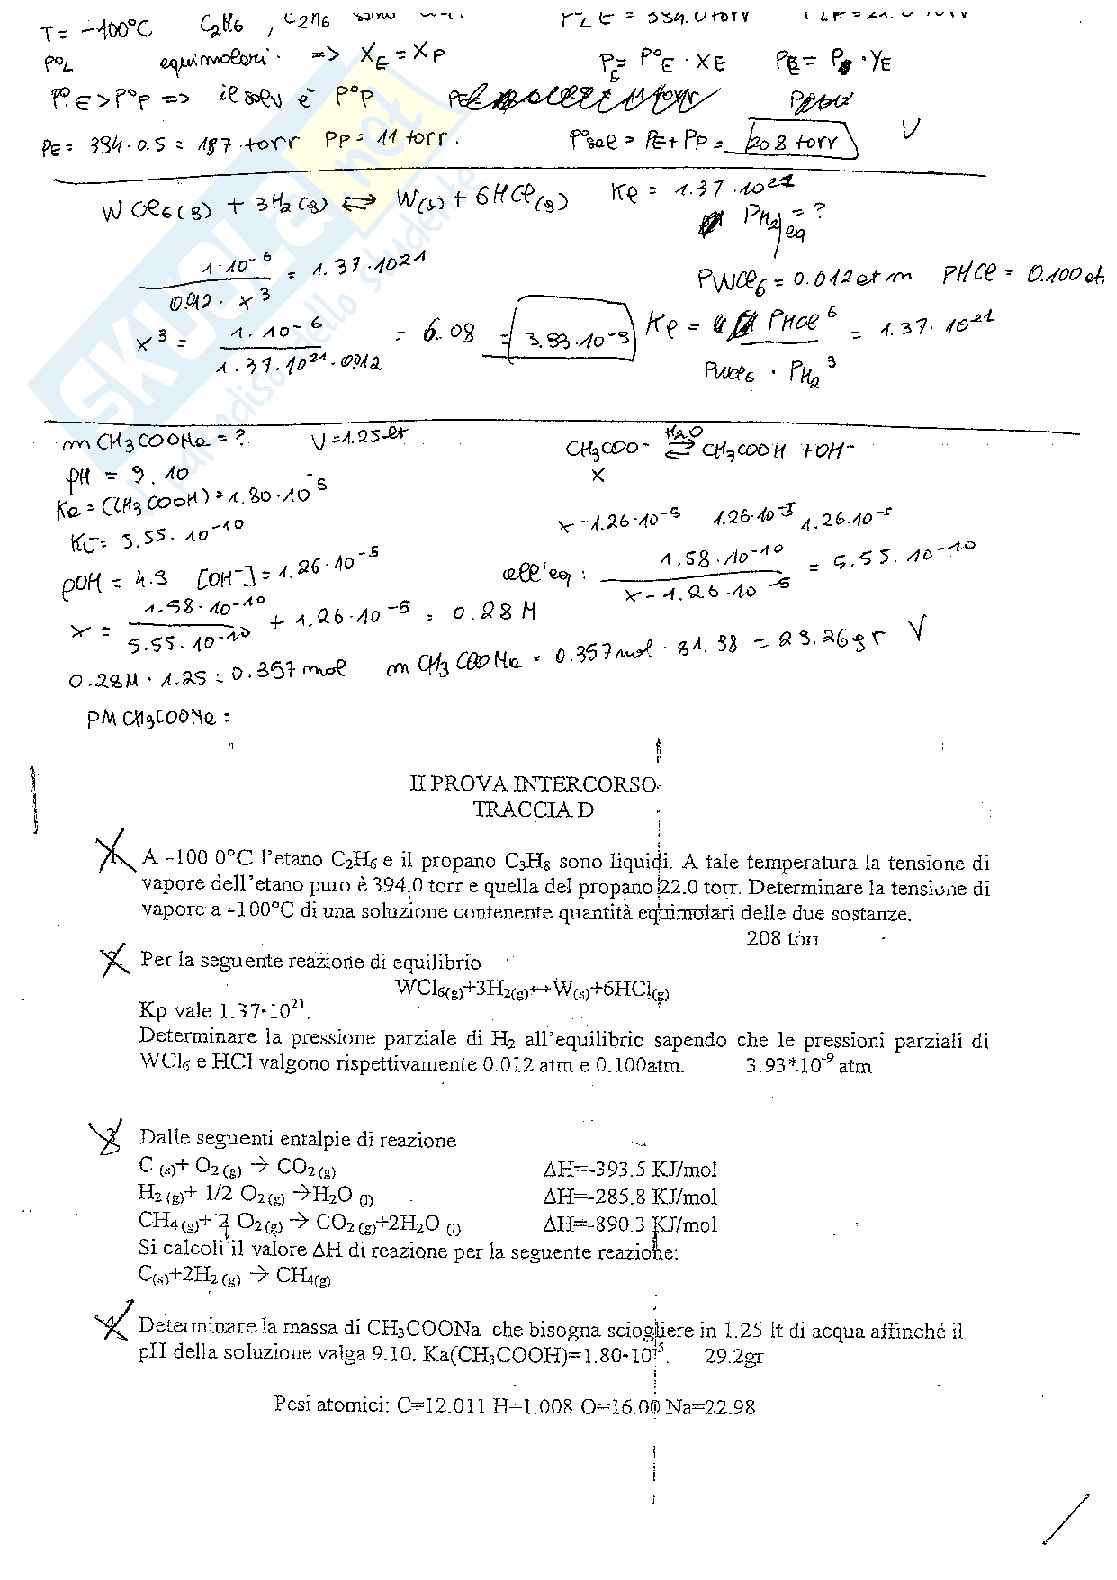 T = -100°C C₂H₆ , C₂H₆
P°L equimolari. => X_E = X_P P_E = P°_E · X_E
P°E > P°P => il solv è P°P
PE = 394 · 0.5 = 197 · torr PP = 11 torr. P°sol = PE + PP = 208 torr V
WCl₆(g) + 3H₂(g) ⇌ W(s) + 6HCl(g) Kp = 1.37·10²¹
PH₂ eq = ?
1·10⁻⁶ / 0.012 · x³ = 1.37·10²¹ PWCl₆ = 0.012 atm PHCl = 0.100 at
x³ = 1·10⁻⁶ / 1.37·10²¹·0.012 = 6.08 = 3.93·10⁻⁹ Kp = PHCl⁶ / PWCl₆ · PH₂³ = 1.37·10²¹
m CH₃COONa = ? V = 1.25 lt CH₃COO⁻ ⇌ H₂O CH₃COOH + OH⁻
pH = 9.10 x
Ka = (CH₃COOH) = 1.80·10⁻⁵
x-1.26·10⁻⁵ 1.26·10⁻⁵ 1.26·10⁻⁵
Ki = 5.55·10⁻¹⁰
pOH = 4.9 [OH⁻] = 1.26·10⁻⁵ all'eq: 1.58·10⁻¹⁰ / x-1.26·10⁻⁵ = 5.55·10⁻¹⁰
x = 1.58·10⁻¹⁰ / 5.55·10⁻¹⁰ + 1.26·10⁻⁵ = 0.28 M
0.28M · 1.25 = 0.357 mol m CH₃COONa = 0.357 mol · 81.98 = 29.26 gr V
PM CH₃COONa =
II PROVA INTERCORSO
TRACCIA D
1 A -100 0°C l'etano C₂H₆ e il propano C₃H₈ sono liquidi. A tale temperatura la tensione di
vapore dell'etano puro è 394.0 torr e quella del propano 22.0 torr. Determinare la tensione di
vapore a -100°C di una soluzione contenente quantità equimolari delle due sostanze.
208 torr
2 Per la seguente reazione di equilibrio
WCl₆(g)+3H₂(g)↔W(s)+6HCl(g)
Kp vale 1.37·10²¹.
Determinare la pressione parziale di H₂ all'equilibrio sapendo che le pressioni parziali di
WCl₆ e HCl valgono rispettivamente 0.012 atm e 0.100atm. 3.93*10⁻⁹ atm
3 Dalle seguenti entalpie di reazione
C (s)+ O₂ (g) → CO₂ (g) ΔH=-393.5 KJ/mol
H₂ (g)+ 1/2 O₂ (g) →H₂O (l) ΔH=-285.8 KJ/mol
CH₄ (g)+ 2 O₂ (g) → CO₂ (g)+2H₂O (l) ΔH=-890.3 KJ/mol
Si calcoli il valore ΔH di reazione per la seguente reazione:
C(s)+2H₂ (g) → CH₄(g)
4 Determinare la massa di CH₃COONa che bisogna sciogliere in 1.25 lt di acqua affinché il
pH della soluzione valga 9.10. Ka(CH₃COOH)=1.80·10⁻⁵. 29.2gr
Pesi atomici: C=12.011 H=1.008 O=16.00 Na=22.98